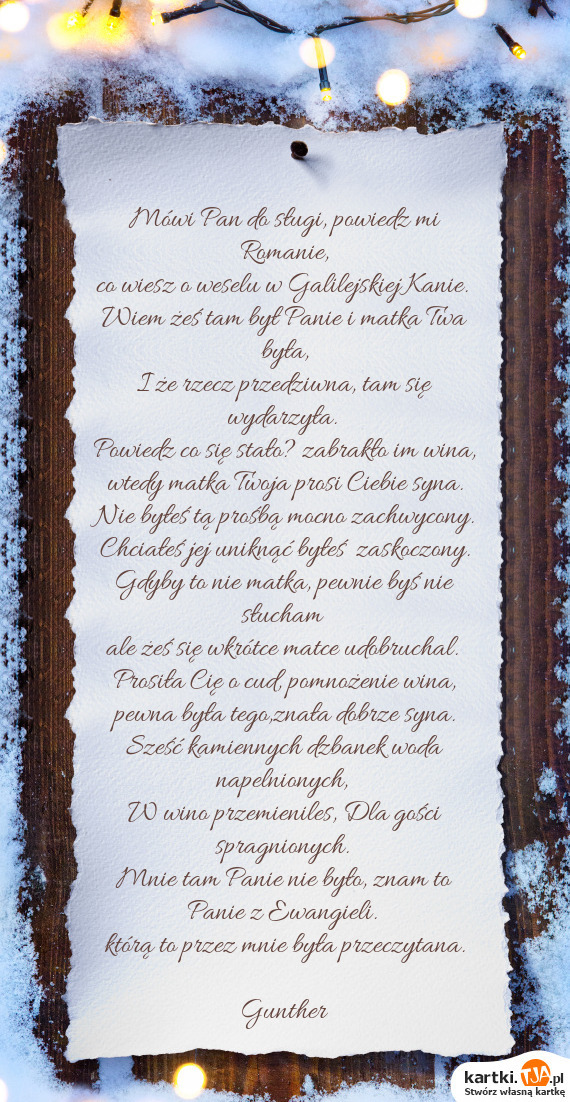 Mówi Pan do sługi, powiedz mi
Romanie,
co wiesz o weselu w Galilejskiej Kanie.
Wiem żeś tam był Panie i matka Twa
była,
I że rzecz przedziwna, tam się
wydarzyła.
Powiedz co się stało? zabrakło im wina,
wtedy matka Twoja prosi Ciebie syna.
Nie byłeś tą prośbą mocno zachwycony.
Chciałeś jej uniknąć byłeś zaskoczony.
Gdyby to nie matka, pewnie byś nie
słucham
ale żeś się wkrótce matce udobruchal.
Prosiła Cię o cud, pomnożenie wina,
pewna była tego,znała dobrze syna.
Sześć kamiennych dzbanek woda
napelnionych,
W wino przemieniles, Dla gości
spragnionych.
Mnie tam Panie nie było, znam to
Panie z Ewangieli.
którą to przez mnie była przeczytana.
Gunther
kartki.TJA.pl
Stwórz własną kartkę